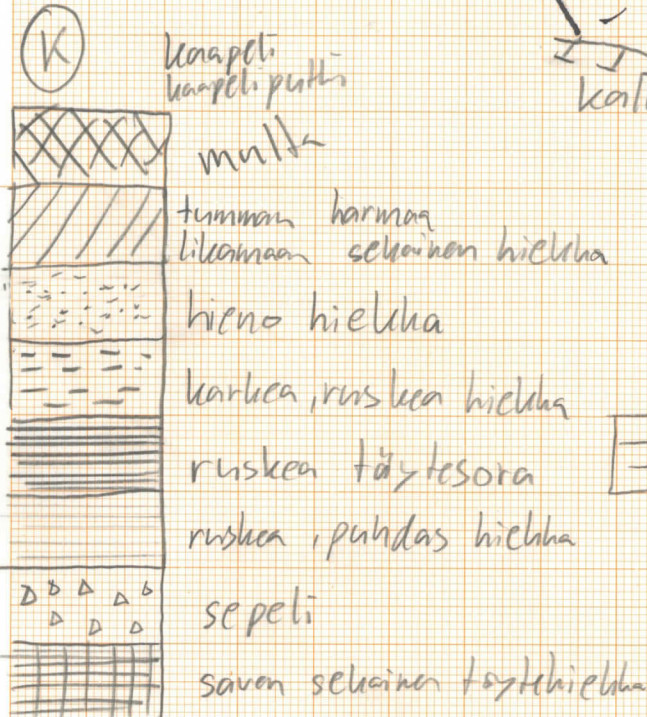 K
kaapeli
kaapeliputki
kall
multa
tumman harmaa
likamaan sekainen hiekka
hieno hiekka
karkea, ruskea hiekka
ruskea täytesora
ruskea, puhdas hiekka
sepeli
saven sekainen täytehiekka